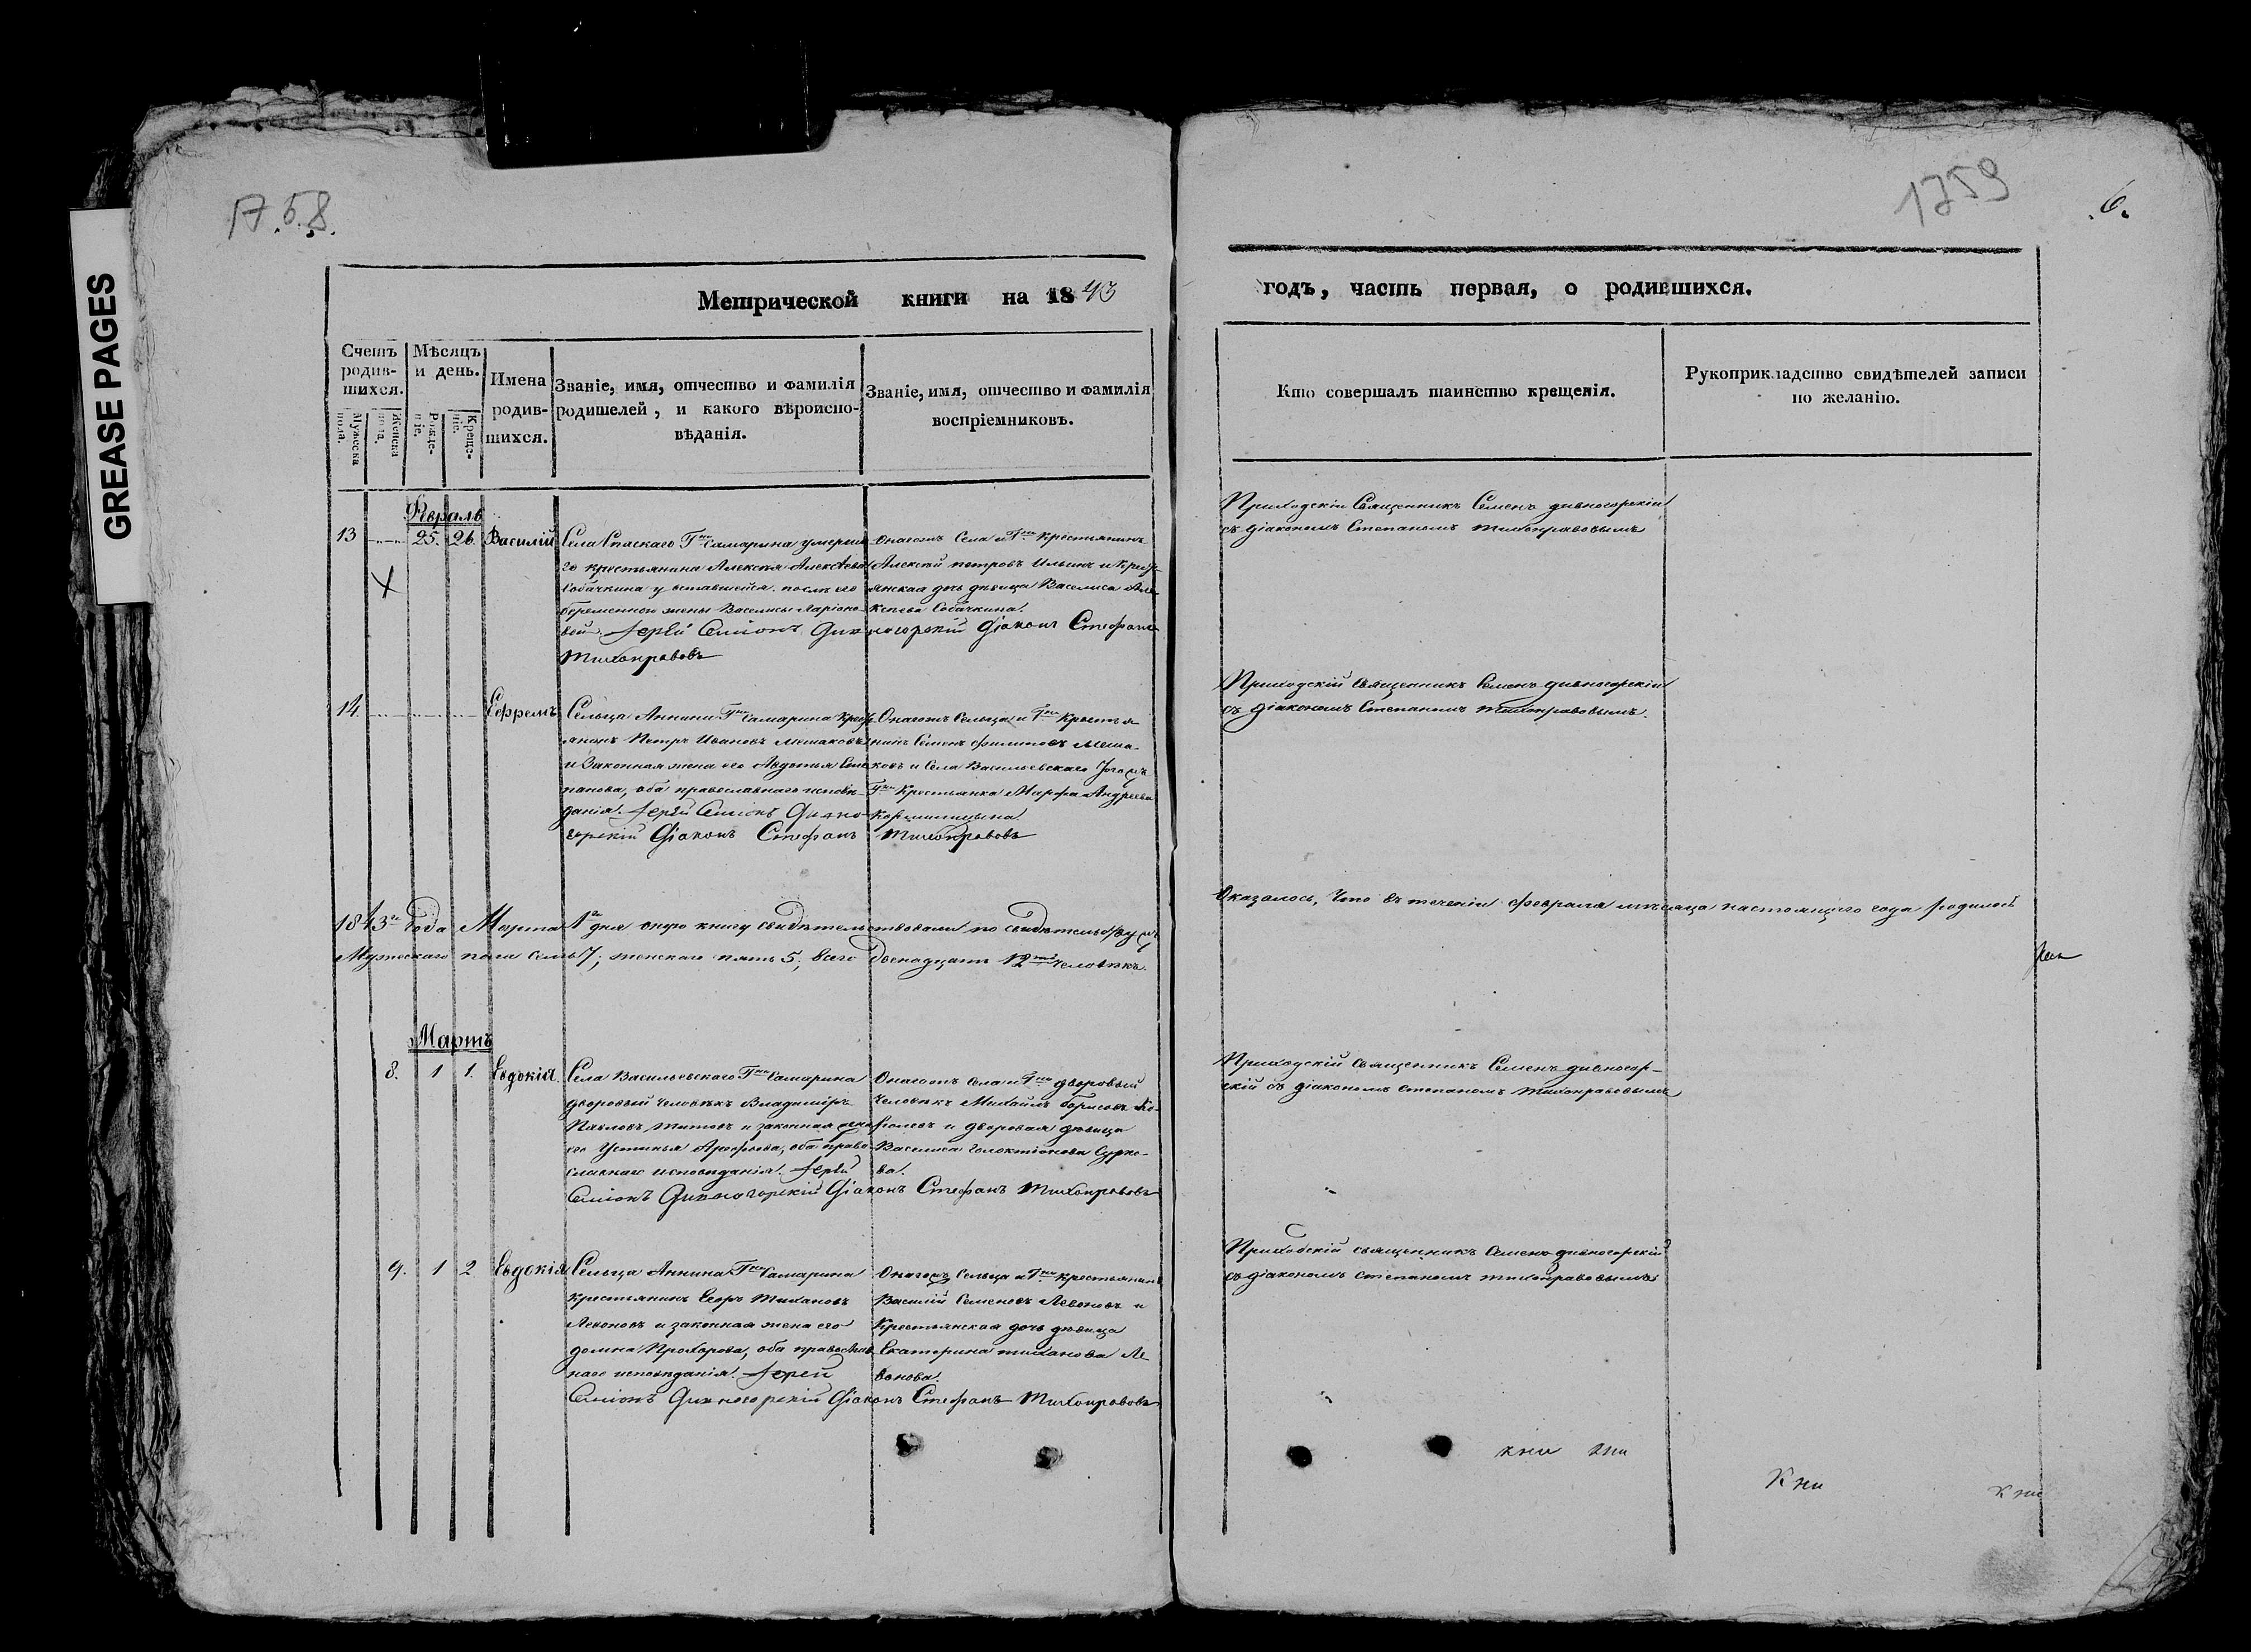 GREASE PAGES
17.5.8.
1759
.6.
Метрической книги на 1843
годъ, часть первая, о родившихся.
Счетъ родив-шихся.
Мужеска пола.
Женска пола.
Мѣсяцъ и день.
Рожде-ніе.
Креще-ніе.
Имена родив-шихся.
Званіе, имя, отчество и фамилія родителей, и какого вѣроиспо-вѣданія.
Званіе, имя, отчество и фамилія воспріемниковъ.
Кто совершалъ таинство крещенія.
Рукоприкладство свидѣтелей записи по желанію.
Февраль
13
25. 26.
Василій
Села Спаскаго Гна Самарина умерша
го крестьянина Алексѣя Алексѣева
Собачкина у оставшейся послѣ его
беременной жены Василисы Ларіоно
вой. Іерей Симіонъ Дивногорскій Діаконъ Стефанъ
Тихонравовъ
Онагожъ Села и Гна крестьянинъ
Алексѣй петровъ Ильинъ и Крест
янская дчь дѣвица Василиса Але
ксѣева Собачкина.
Приходскій Священникъ Семенъ дивногорскій
съ діакономъ Степаномъ тихонравовымъ
14
Ефремъ
Сельца Аннина Гна Самарина крест
янинъ Петръ Ивановъ Мешаковъ
и законная жена его Авдотья Сте
панова, оба православнаго исповѣ
данія. Іерей Симіонъ Дивно
горскій Діаконъ Стефанъ Тихонравовъ
Онагожъ Сельца и Гна крестья
нинъ Семенъ филиповъ Меша
ковъ и Села Васильевскаго
Гна Крестьянка Марфа Андреева
Приходскій священникъ Семенъ дивногорскій
съ діакономъ Степаномъ тихонравовымъ.
1843го Года Марта 1го дня оную книгу свидѣтельствовали по свидѣтельству
Оказалось, что въ теченіи февраля мѣсяца настоящаго года родилось
Мужескаго пола семь 7, женскаго пять 5, всего двенадцать 12ть человѣкъ.
Мартъ
8. 1 1.
Евдокія
Села Васильевскаго Гна Самарина
дворовый человѣкъ Владиміръ
Павловъ Титовъ и законная жена
его Устинья Арефьева, оба право
славнаго исповѣданія. Іерей
Симіонъ Дивногорскій Діаконъ Стефанъ Тихонравовъ
Онагожъ села и Гна дворовый
человѣкъ Михаилъ Борисовъ Ко
ролевъ и дворовая дѣвица
Василиса Голоктіонова Сурко-
ва.
Приходскій священникъ Семенъ дивногор-
скій съ діакономъ степаномъ Тихонравовымъ
9. 1 2.
Евдокія
Сельца Аннина Гна Самарина
крестьянинъ Егоръ Тихановъ
Левоновъ и законная жена его
домна Прохорова, оба православ
наго исповѣданія. Іерей
Симіонъ Дивногорскій Діаконъ Стефанъ Тихонравовъ
Онагожъ сельца и Гна крестьянинъ
Василій Семеновъ Левоновъ и
крестьянская дочь дѣвица
Екатерина тиханова Ле
вонова.
Приходскій священникъ Семенъ дивногорскій
съ діакономъ степаномъ тихонравовымъ
кни кни
Кни
кни